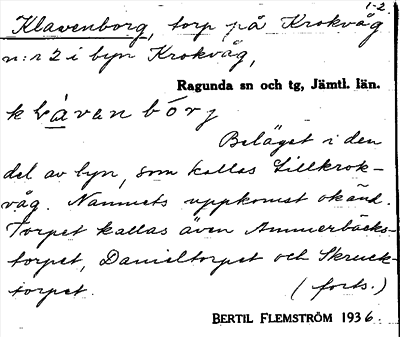 1-2.
Klavenborg, torp på Krokvåg
n:r 2 i byn Krokvåg,
Ragunda sn och tg, Jämtl. län.
Beläget i den
del av byn, som kallas Lillkrok-
våg. Namnets uppkomst okänd.
Torpet kallas även Ammerbäcks-
torpet, Danieltorpet och Skruck-
torpet. (forts.)
BERTIL FLEMSTRÖM 1936.